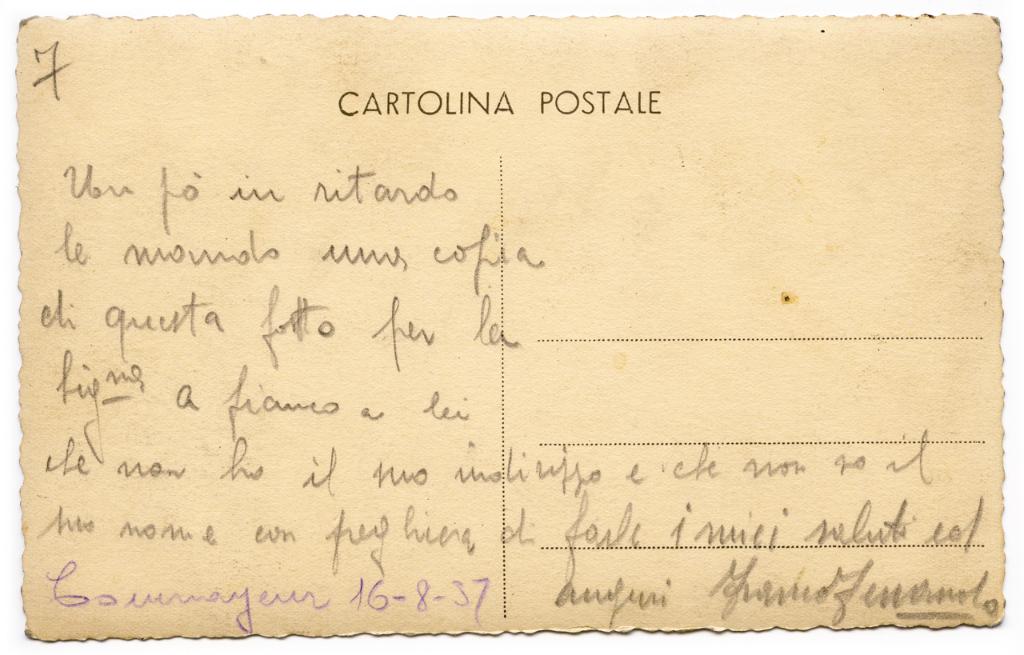 7
CARTOLINA POSTALE
Un pò in ritardo
le mando una copia
di questa fotto per la
Signa a fianco a lei
che non ho il suo indirizzo e che non so il
suo nome con preghiera di farle i miei saluti ed
auguri Franco
Courmayeur 16-8-37